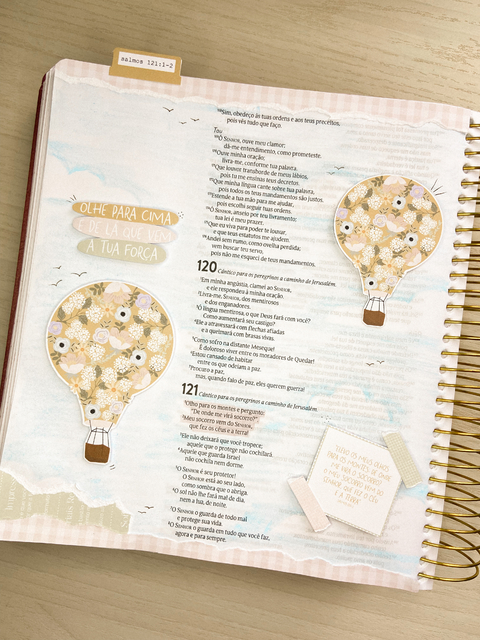 salmos 121:1-2
OLHE PARA CIMA
É DE LÁ QUE VEM
A TUA FORÇA
168Sim, obedeço às tuas ordens e aos teus preceitos,
pois vês tudo que faço.
Tau
169Ó SENHOR, ouve meu clamor;
dá-me entendimento, como prometeste.
170Ouve minha oração;
livra-me, conforme tua palavra.
171Que louvor transborde de meus lábios,
pois tu me ensinas teus decretos.
172Que minha língua cante sobre tua palavra,
pois todos os teus mandamentos são justos.
173Estende a tua mão para me ajudar,
pois escolhi seguir tuas ordens.
174Ó SENHOR, anseio por teu livramento;
tua lei é meu prazer.
175Que eu viva para poder te louvar,
e que teus estatutos me ajudem.
176Andei sem rumo, como ovelha perdida;
vem buscar teu servo,
pois não me esqueci de teus mandamentos.
120 Cântico para os peregrinos a caminho de Jerusalém.
1Em minha angústia, clamei ao SENHOR,
e ele respondeu à minha oração.
2Livra-me, SENHOR, dos mentirosos
e dos enganadores.
3Ó língua mentirosa, o que Deus fará com você?
Como aumentará seu castigo?
4Ele a atravessará com flechas afiadas
e a queimará com brasas vivas.
5Como sofro na distante Meseque!
É doloroso viver entre os moradores de Quedar!
6Estou cansado de habitar
entre os que odeiam a paz.
7Procuro a paz,
mas, quando falo de paz, eles querem guerra!
121 Cântico para os peregrinos a caminho de Jerusalém.
1Olho para os montes e pergunto:
"De onde me virá socorro?"
2Meu socorro vem do SENHOR,
que fez os céus e a terra!
3Ele não deixará que você tropece;
aquele que o protege não cochilará.
4Aquele que guarda Israel
não cochila nem dorme.
5O SENHOR é seu protetor!
O SENHOR está ao seu lado,
como sombra que o abriga.
6O sol não lhe fará mal de dia,
nem a lua, de noite.
7O SENHOR o guarda de todo mal
e protege sua vida.
8O SENHOR o guarda em tudo que você faz,
agora e para sempre.